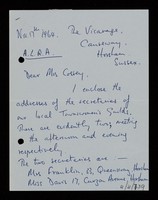 Nov 11th 1964. The Vicarage,
Causeway,
A.L.R.A. Horsham
Sussex.
Dear Mrs Cossey,
I enclose the
addresses of the secretaries of
our local Townswomen's Guilds.
There are evidently two, meeting
the afternoon and evening
respectively.
The two secretaries are —
Mrs Franklin, 13, Queensway, Horsham
Miss Davis, 17, Horsham